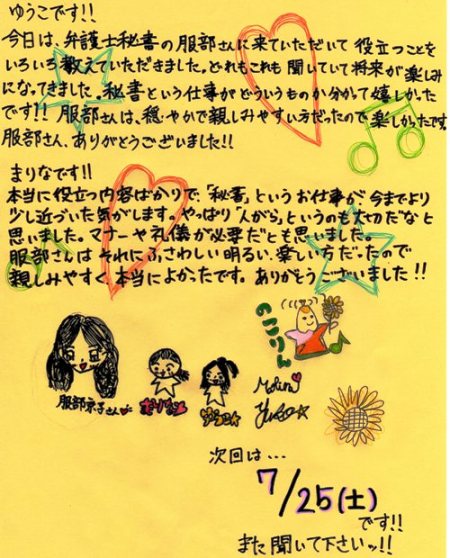 ゆうこです!!
今日は、弁護士秘書の服部さんに来ていただいて 役立つことを
いろいろ教えていただきました。どれもこれも 聞いていて将来が楽しみ
になってきました。秘書という仕事がどういうものか分かって嬉しかった
です!! 服部さんは、穏やかで親しみやすい方だったので楽しかったです。
服部さん、ありがとうございました!!
まりなです!!
本当に役立つ内容ばかりで、「秘書」というお仕事が、今までより
少し近づいた気がします。やっぱり「人がら」というのも大切だなと
思いました。マナーや礼儀が必要だとも思いました。
服部さんは それにふさわしい明るい、楽しい方だったので
親しみやすく、本当によかったです。ありがとうございました!!
のこりん
服部京子さん
まりな
ゆうこ
Yuko
次回は…
7/25(土)
です!!
また聞いて下さいッ!!